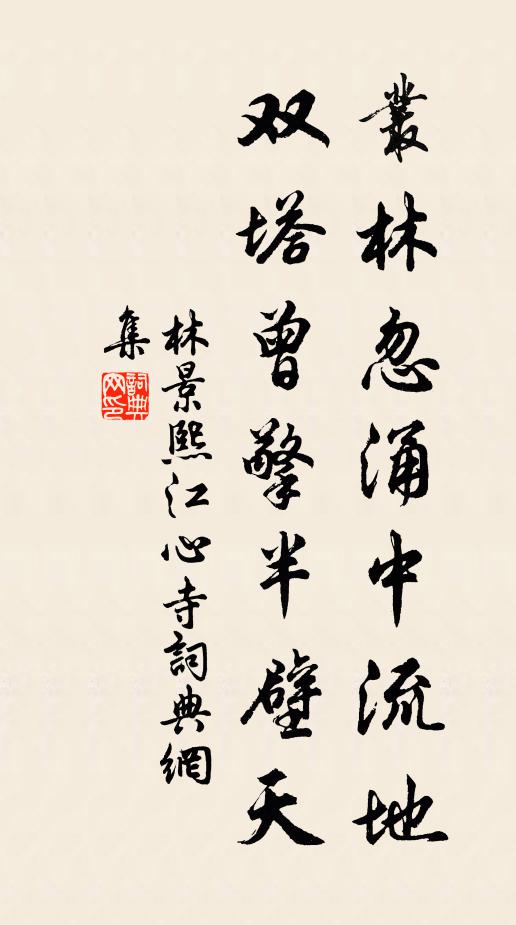 叢林忽涌中流地
双塔曾擎半壁天
林景熙江心寺詞典網
集
詞典
网印